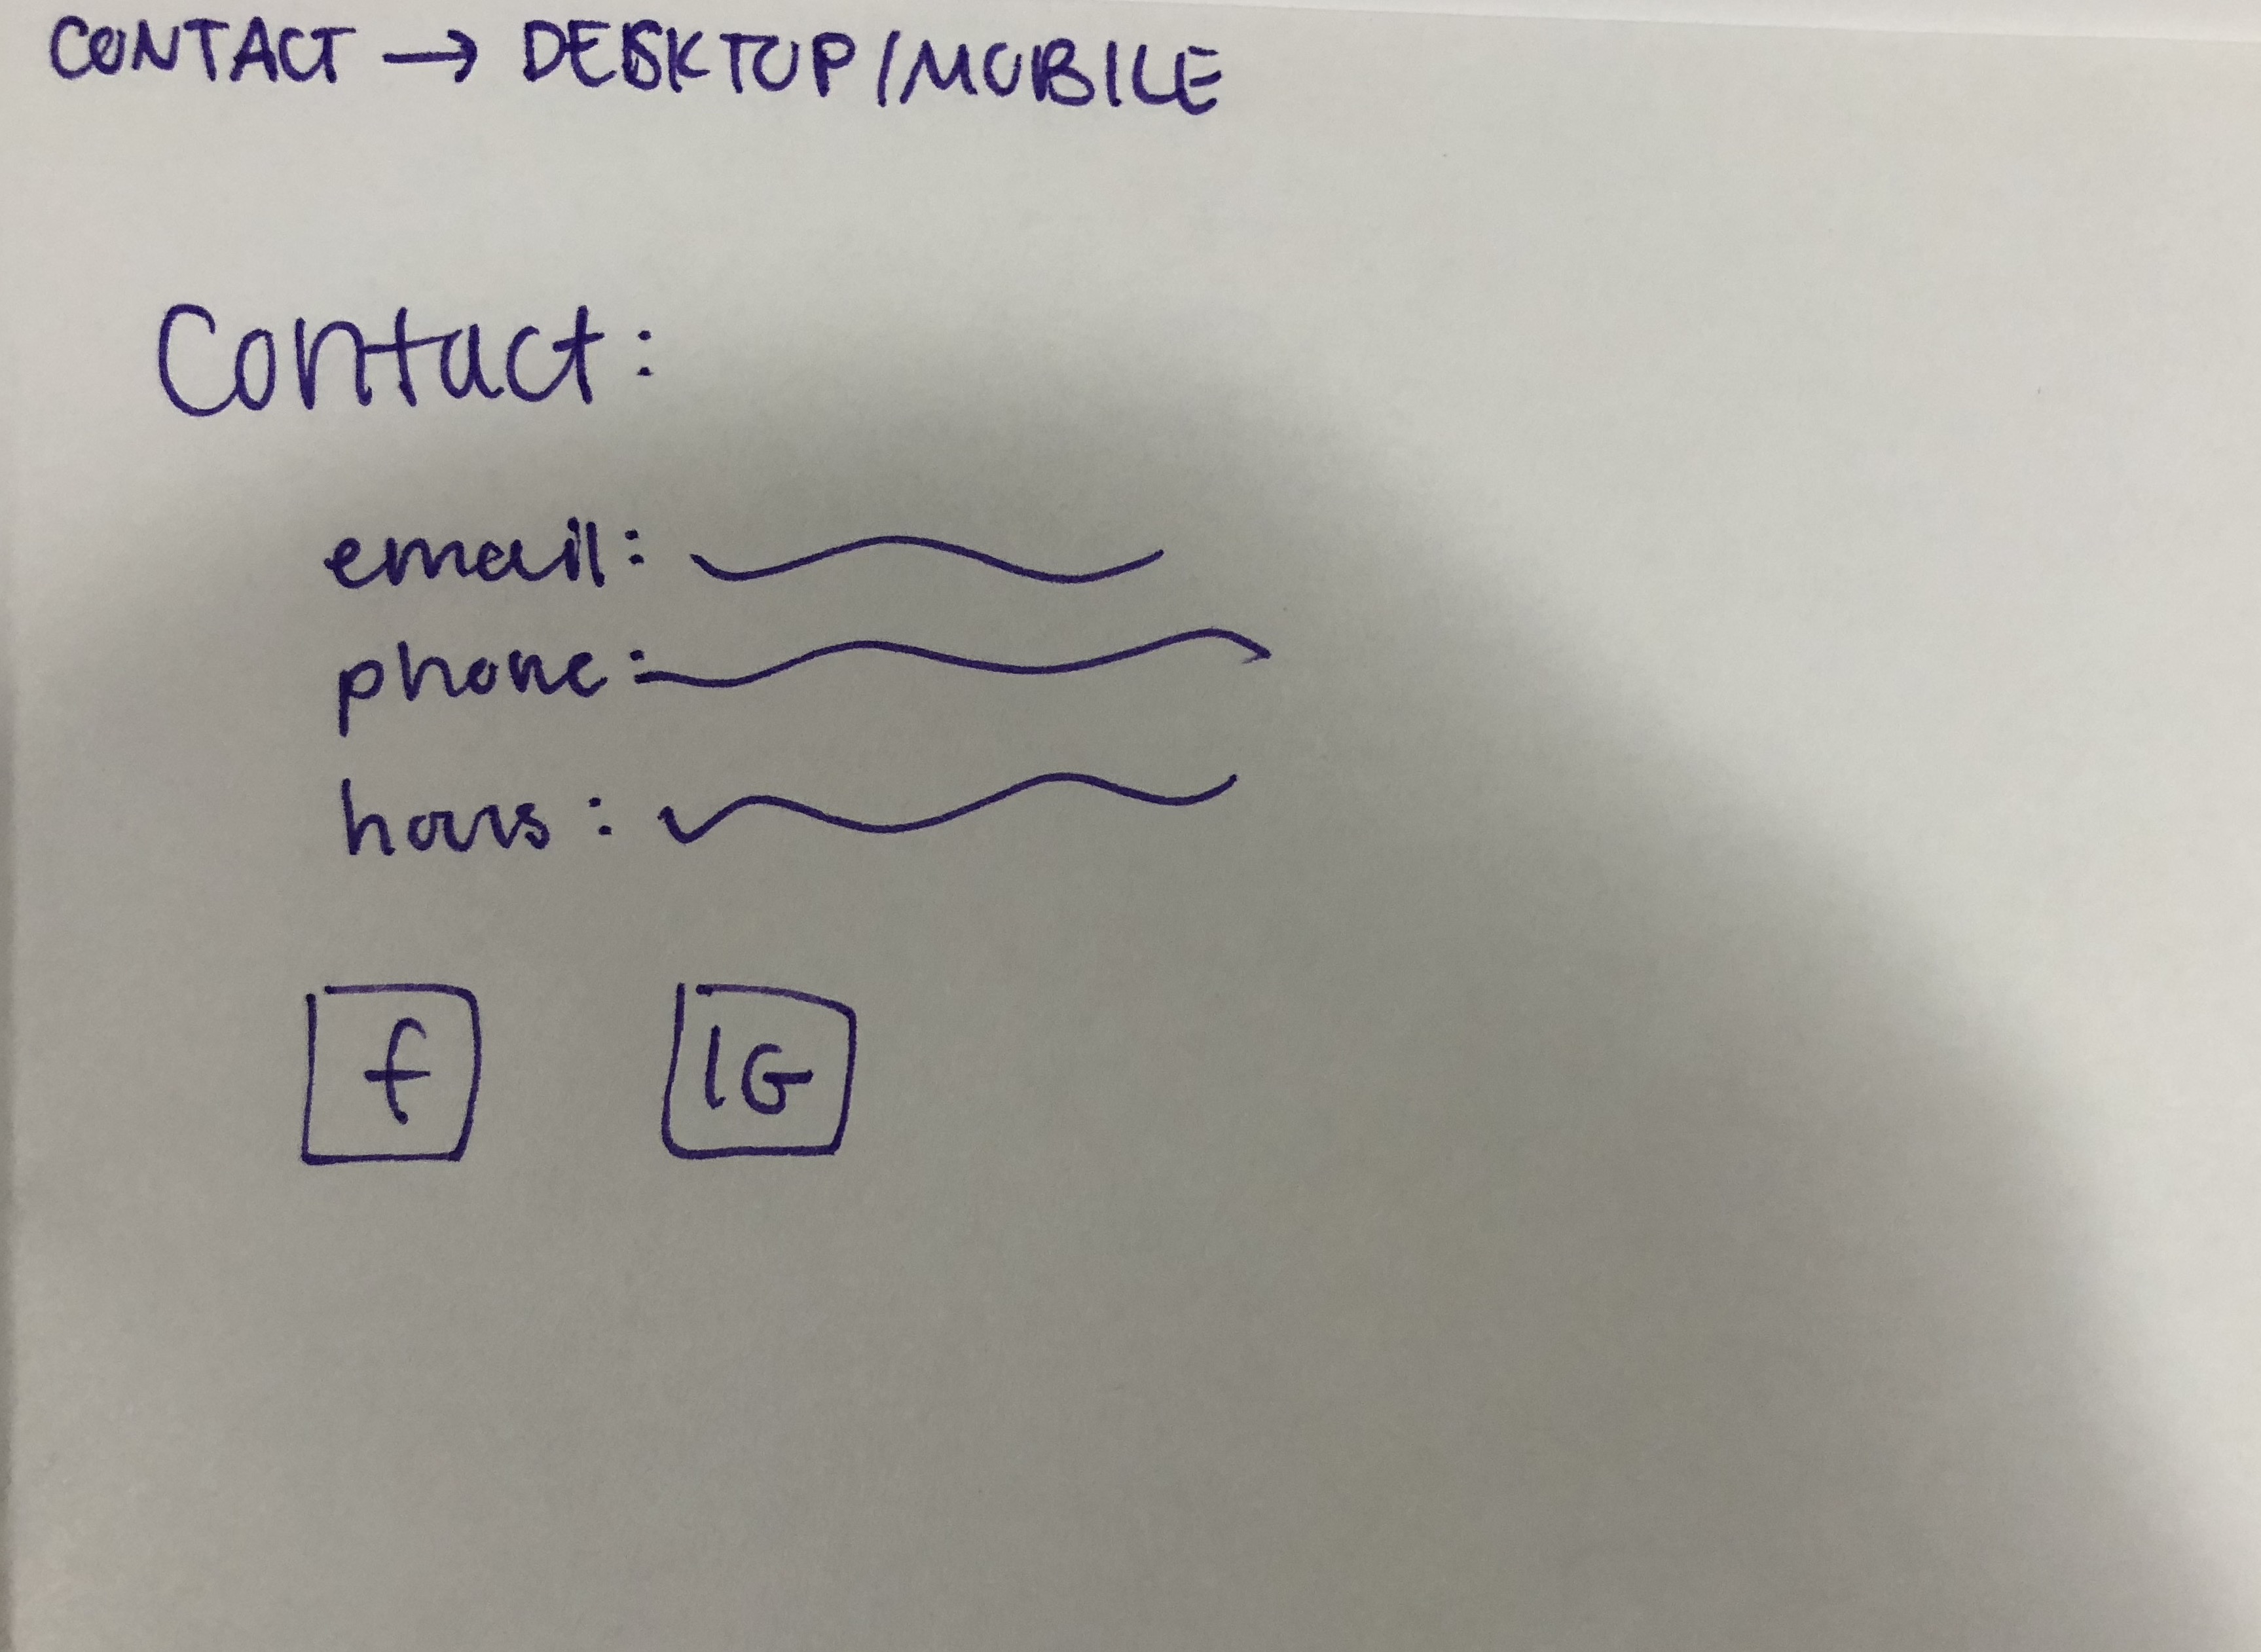 CONTACT → DESKTOP/MOBILE
Contact:
email:
phone:
hours:
f IG